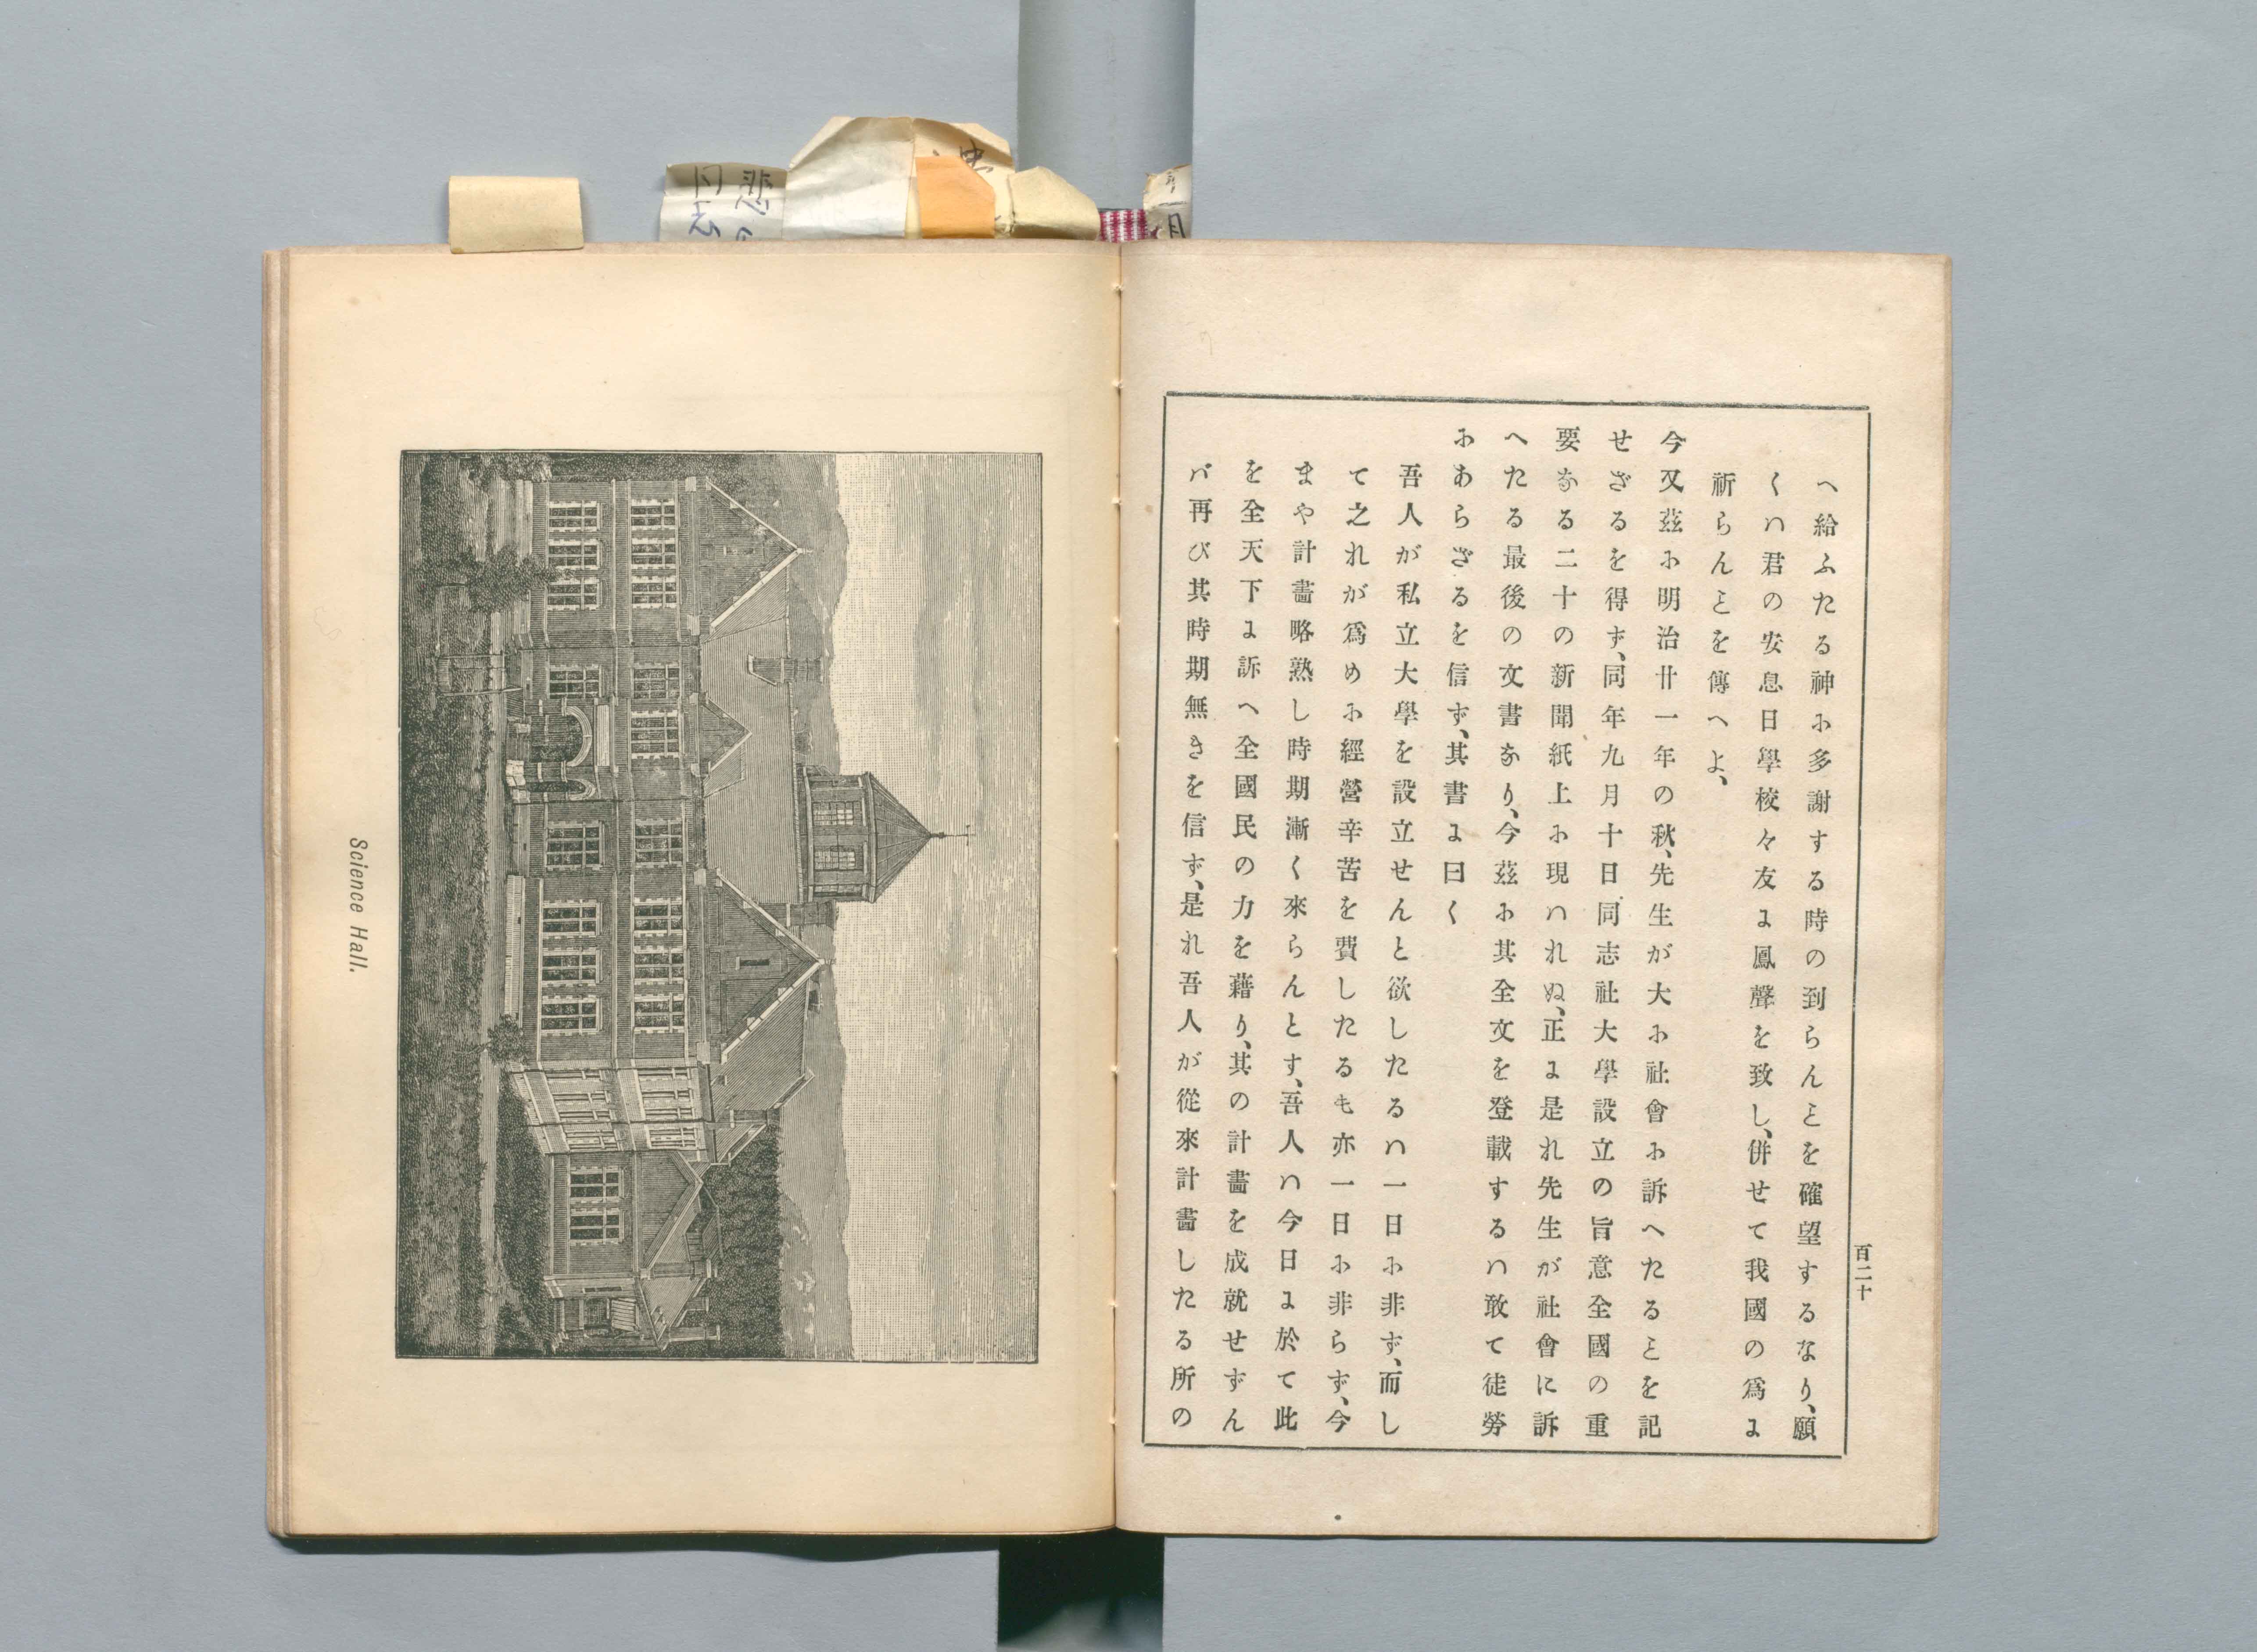 百二十
へ給ふたる神に多謝する時の到らんヿを確望するなり、願
くハ君の安息日學校々友に鳳聲を致し、併せて我國の爲に
祈らんヿを傳へよ、
今又茲に明治廿一年の秋、先生が大に社會に訴へたるヿを記
せざるを得ず、同年九月十日同志社大學設立の旨意全國の重
要なる二十の新聞紙上に現ハれぬ、正に是れ先生が社會に訴
へたる最後の文書なり、今茲に其全文を登載するハ敢て徒勞
にあらざるを信ず、其書に曰く
吾人が私立大學を設立せんと欲したるハ一日に非ず、而し
て之れが爲めに經營辛苦を費したるも亦一日に非らず、今
まや計畵略熟し時期漸く來らんとす、吾人ハ今日に於て此
を全天下に訴へ全國民の力を藉り、其の計畵を成就せずん
バ再び其時期無きを信ず、是れ吾人が從來計畵したる所の
Science Hall.
悲
月